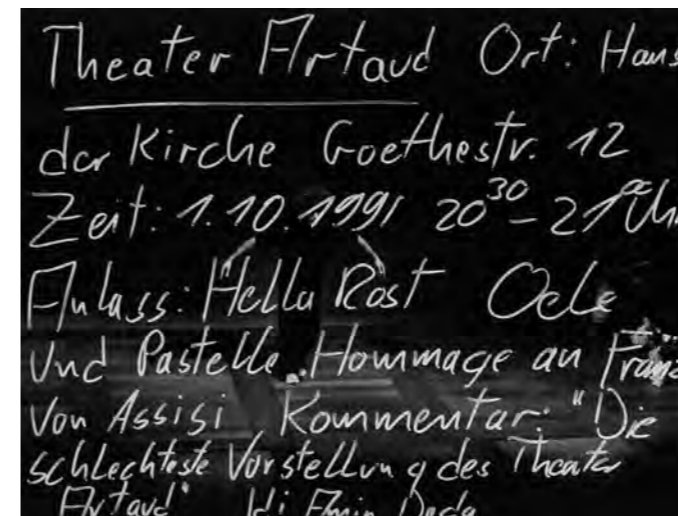 Theater Artaud Ort: Haus
der Kirche Goethestr. 12
Zeit: 1.10.1991 20³⁰ - 21 Uh
Anlass: Hella Rost Oele
und Pastelle "Hommage an Franz
Von Assisi Kommentar: "Die
schlechteste Vorstellung des Theater
Artaud" Idi Amin Dada